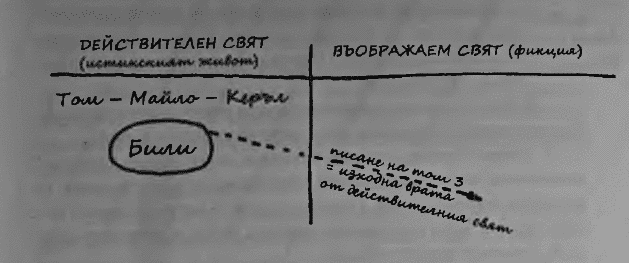 ДЕЙСТВИТЕЛЕН СВЯТ
(истинският живот)
ВЪОБРАЖАЕМ СВЯТ (фикция)
Том – Майло – Керъл
Били
писане на том 3
= изходна врата
от действителния свят